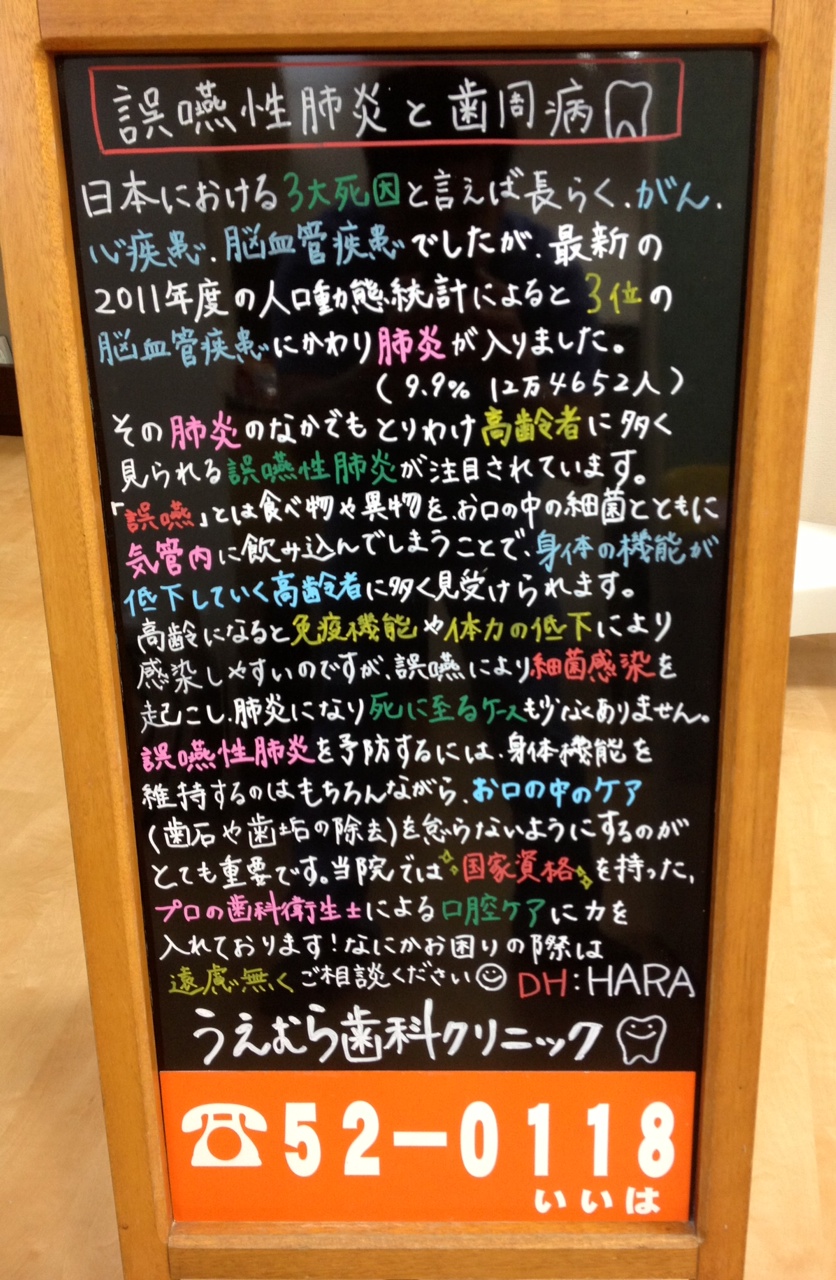 誤嚥性肺炎と歯周病
日本における3大死因と言えば長らく、がん、
心疾患、脳血管疾患でしたが、最新の
2011年度の人口動態統計によると3位の
脳血管疾患にかわり肺炎が入りました。
(9.9% 12万4652人)
その肺炎のなかでもとりわけ高齢者に多く
見られる誤嚥性肺炎が注目されています。
「誤嚥」とは食べ物や異物を、お口の中の細菌とともに
気管内に飲み込んでしまうことで、身体の機能が
低下していく高齢者に多く見受けられます。
高齢になると免疫機能や体力の低下により
感染しやすいのですが、誤嚥により細菌感染を
起こし、肺炎になり死に至るケースも少なくありません。
誤嚥性肺炎を予防するには、身体機能を
維持するのはもちろんながら、お口の中のケア
(歯石や歯垢の除去)を怠らないようにするのが
とても重要です。当院では国家資格を持った、
プロの歯科衛生士による口腔ケアに力を
入れております!なにかお困りの際は
遠慮無くご相談ください DH:HARA
うえむら歯科クリニック
52-0118
いいは